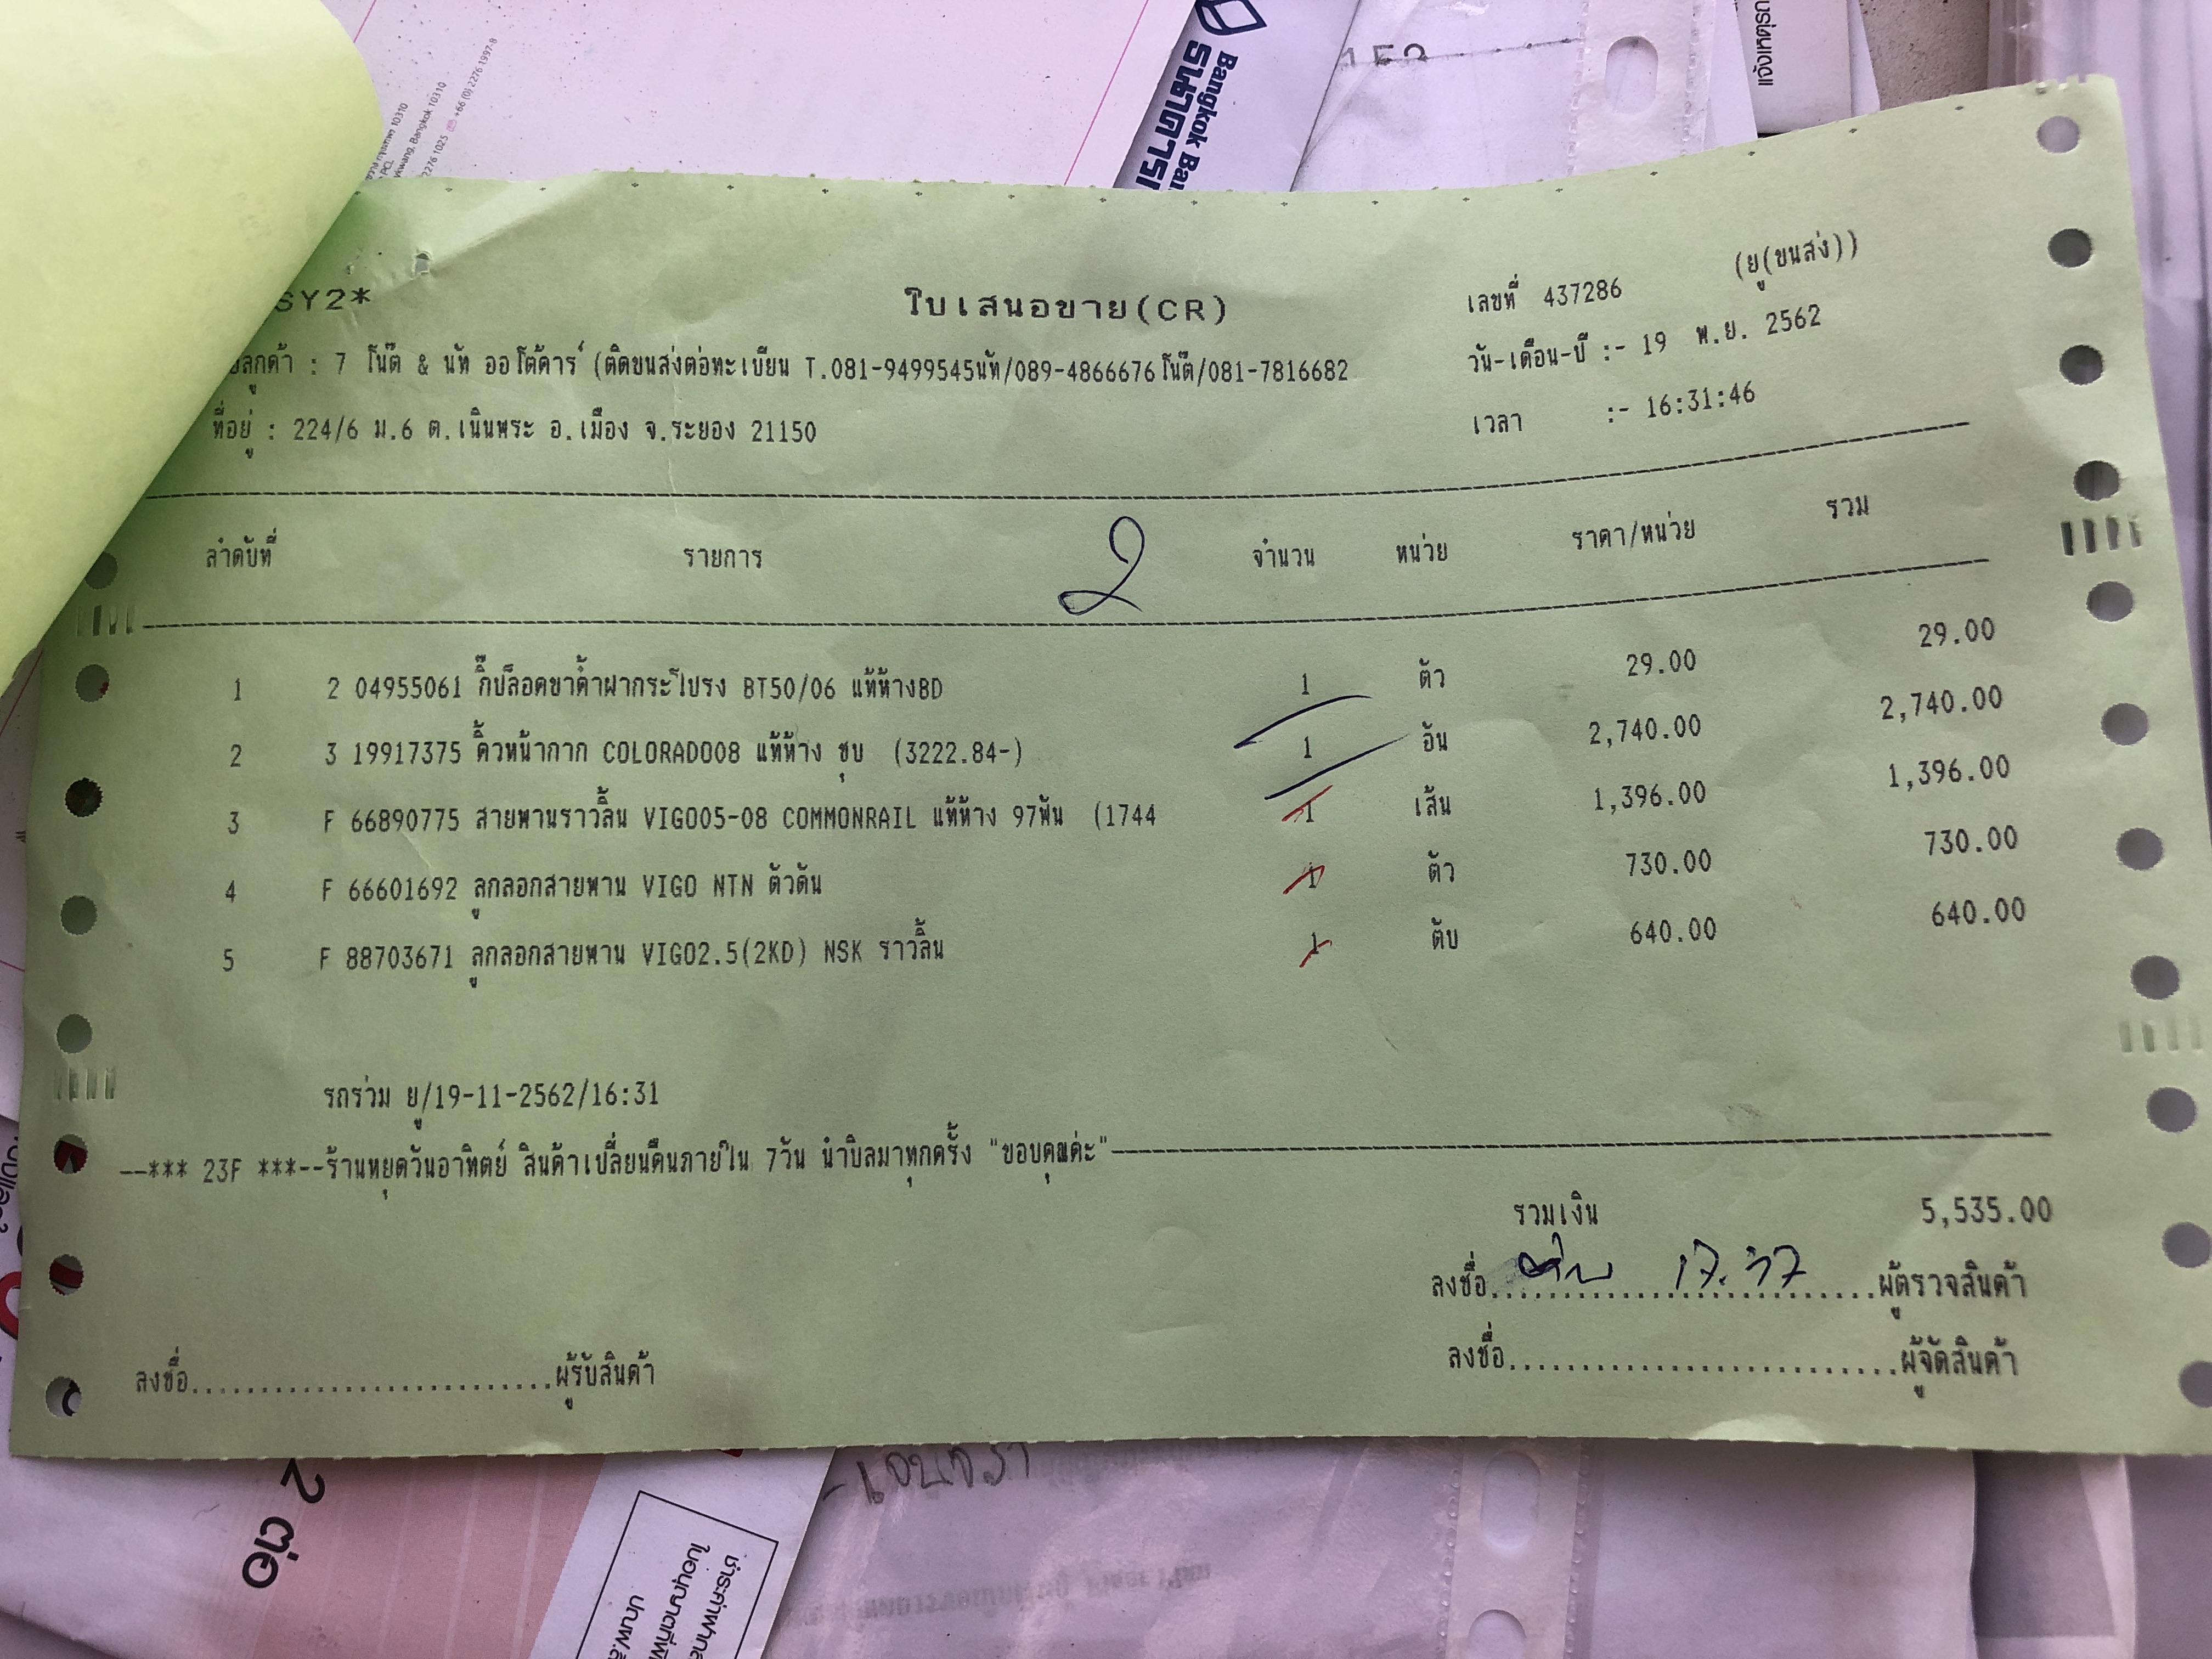 กรุงเทพฯ 10310
PCL
kwang, Bangkok 10310
2276 1025 +66 (0) 2276 1997-8
Bangkok Ban
ธนาคารก
แจ้งเหตุรถ
SY2*
ใบเสนอขาย(CR)
เลขที่ 437286 (ยู(ขนส่ง))
ลูกค้า : 7 โน๊ต & นัท ออโต้คาร์ (ติดขนส่งต่อทะเบียน T.081-9499545นัท/089-4866676โน๊ต/081-7816682
วัน-เดือน-ปี :- 19 พ.ย. 2562
ที่อยู่ : 224/6 ม.6 ต.เนินพระ อ.เมือง จ.ระยอง 21150
เวลา :- 16:31:46
ลำดับที่ รายการ จำนวน หน่วย ราคา/หน่วย รวม
2
1 2 04955061 กิ๊ปล็อคขาค้ำฝากระโปรง BT50/06 แท้ห้างBD 1 ตัว 29.00 29.00
2 3 19917375 คิ้วหน้ากาก COLORADO08 แท้ห้าง ชุบ (3222.84-) 1 อัน 2,740.00 2,740.00
3 F 66890775 สายพานราวลิ้น VIGO05-08 COMMONRAIL แท้ห้าง 97ฟัน (1744 1 เส้น 1,396.00 1,396.00
4 F 66601692 ลูกลอกสายพาน VIGO NTN ตัวดัน 1 ตัว 730.00 730.00
5 F 88703671 ลูกลอกสายพาน VIGO2.5(2KD) NSK ราวลิ้น 1 ตับ 640.00 640.00
รถร่วม ยู/19-11-2562/16:31
--*** 23F ***--ร้านหยุดวันอาทิตย์ สินค้าเปลี่ยนคืนภายใน 7วัน นำบิลมาทุกครั้ง "ขอบคุณค่ะ"
รวมเงิน 5,535.00
ลงชื่อ 17.37 ผู้ตรวจสินค้า
ลงชื่อ..............................ผู้จัดสินค้า
ลงชื่อ..............................ผู้รับสินค้า
2 ต่อ